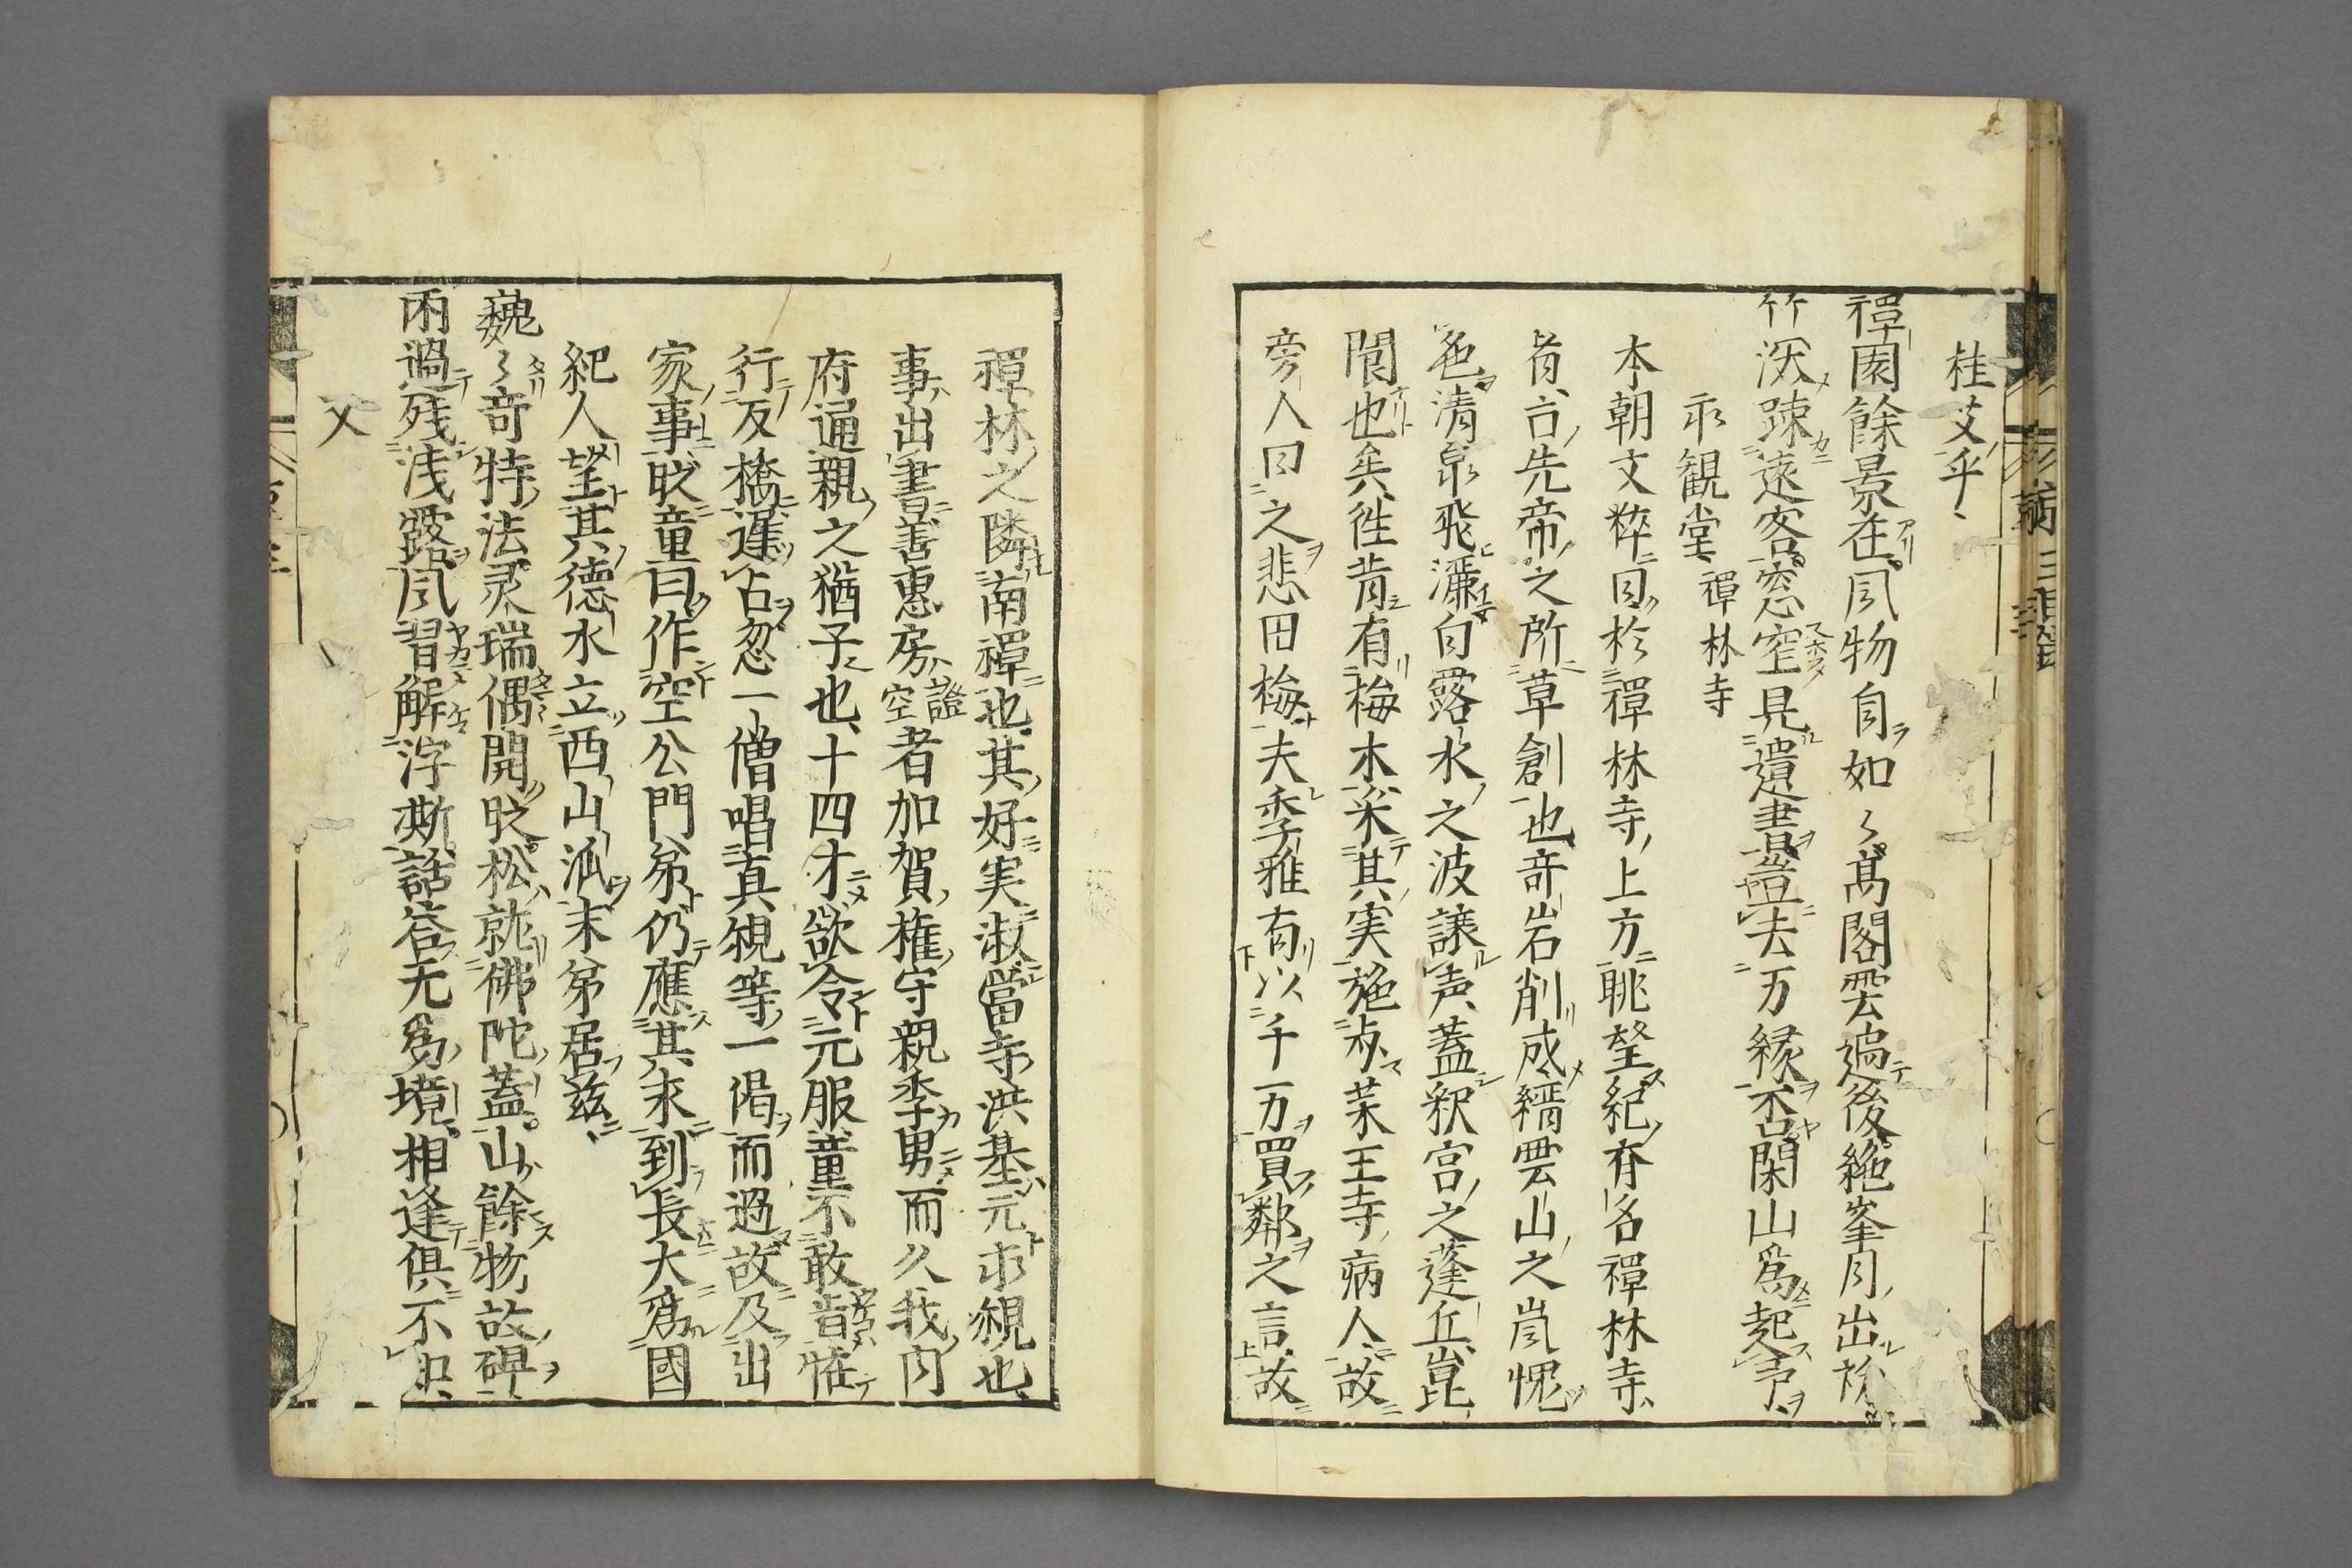 桂艾乎、
禅園餘景在風物自如〻高閣雲過後絶峯月出初
竹深踈遠客窓窄見遺書盡去万縁吝閑山爲起予
永観堂 禅林寺
本朝文粋曰於禅林寺上方眺望紀斉名禅林寺
者、古先帝之所草創也奇岩削成縉雲山之嵐愧
色清泉飛灑白露水之波譲声、蓋釈宮之蓬丘崑
閬也矣、徃昔有梅木采其実施与薬王寺病人、故
旁人曰之悲田梅夫季雅有以千万買鄰之言故
禅林之隣南禅也、其好実淑當寺洪基元求観也、
事出書善恵房證空者加賀権守親季男而久我内
府通親之猶子也、十四才欲令元服童不敢肯恠
行反橋遅占忽一僧唱真観等一偈而過故及出
家事、敀童曰作空公門弟仍應其求到長大爲國
紀人望其德水立西山派末弟居茲、
巍〻奇特法灵瑞偶開敀松就佛陀蓋山餘物故碑
雨過残浅露風習解字撕話答无爲境相逢俱不
又